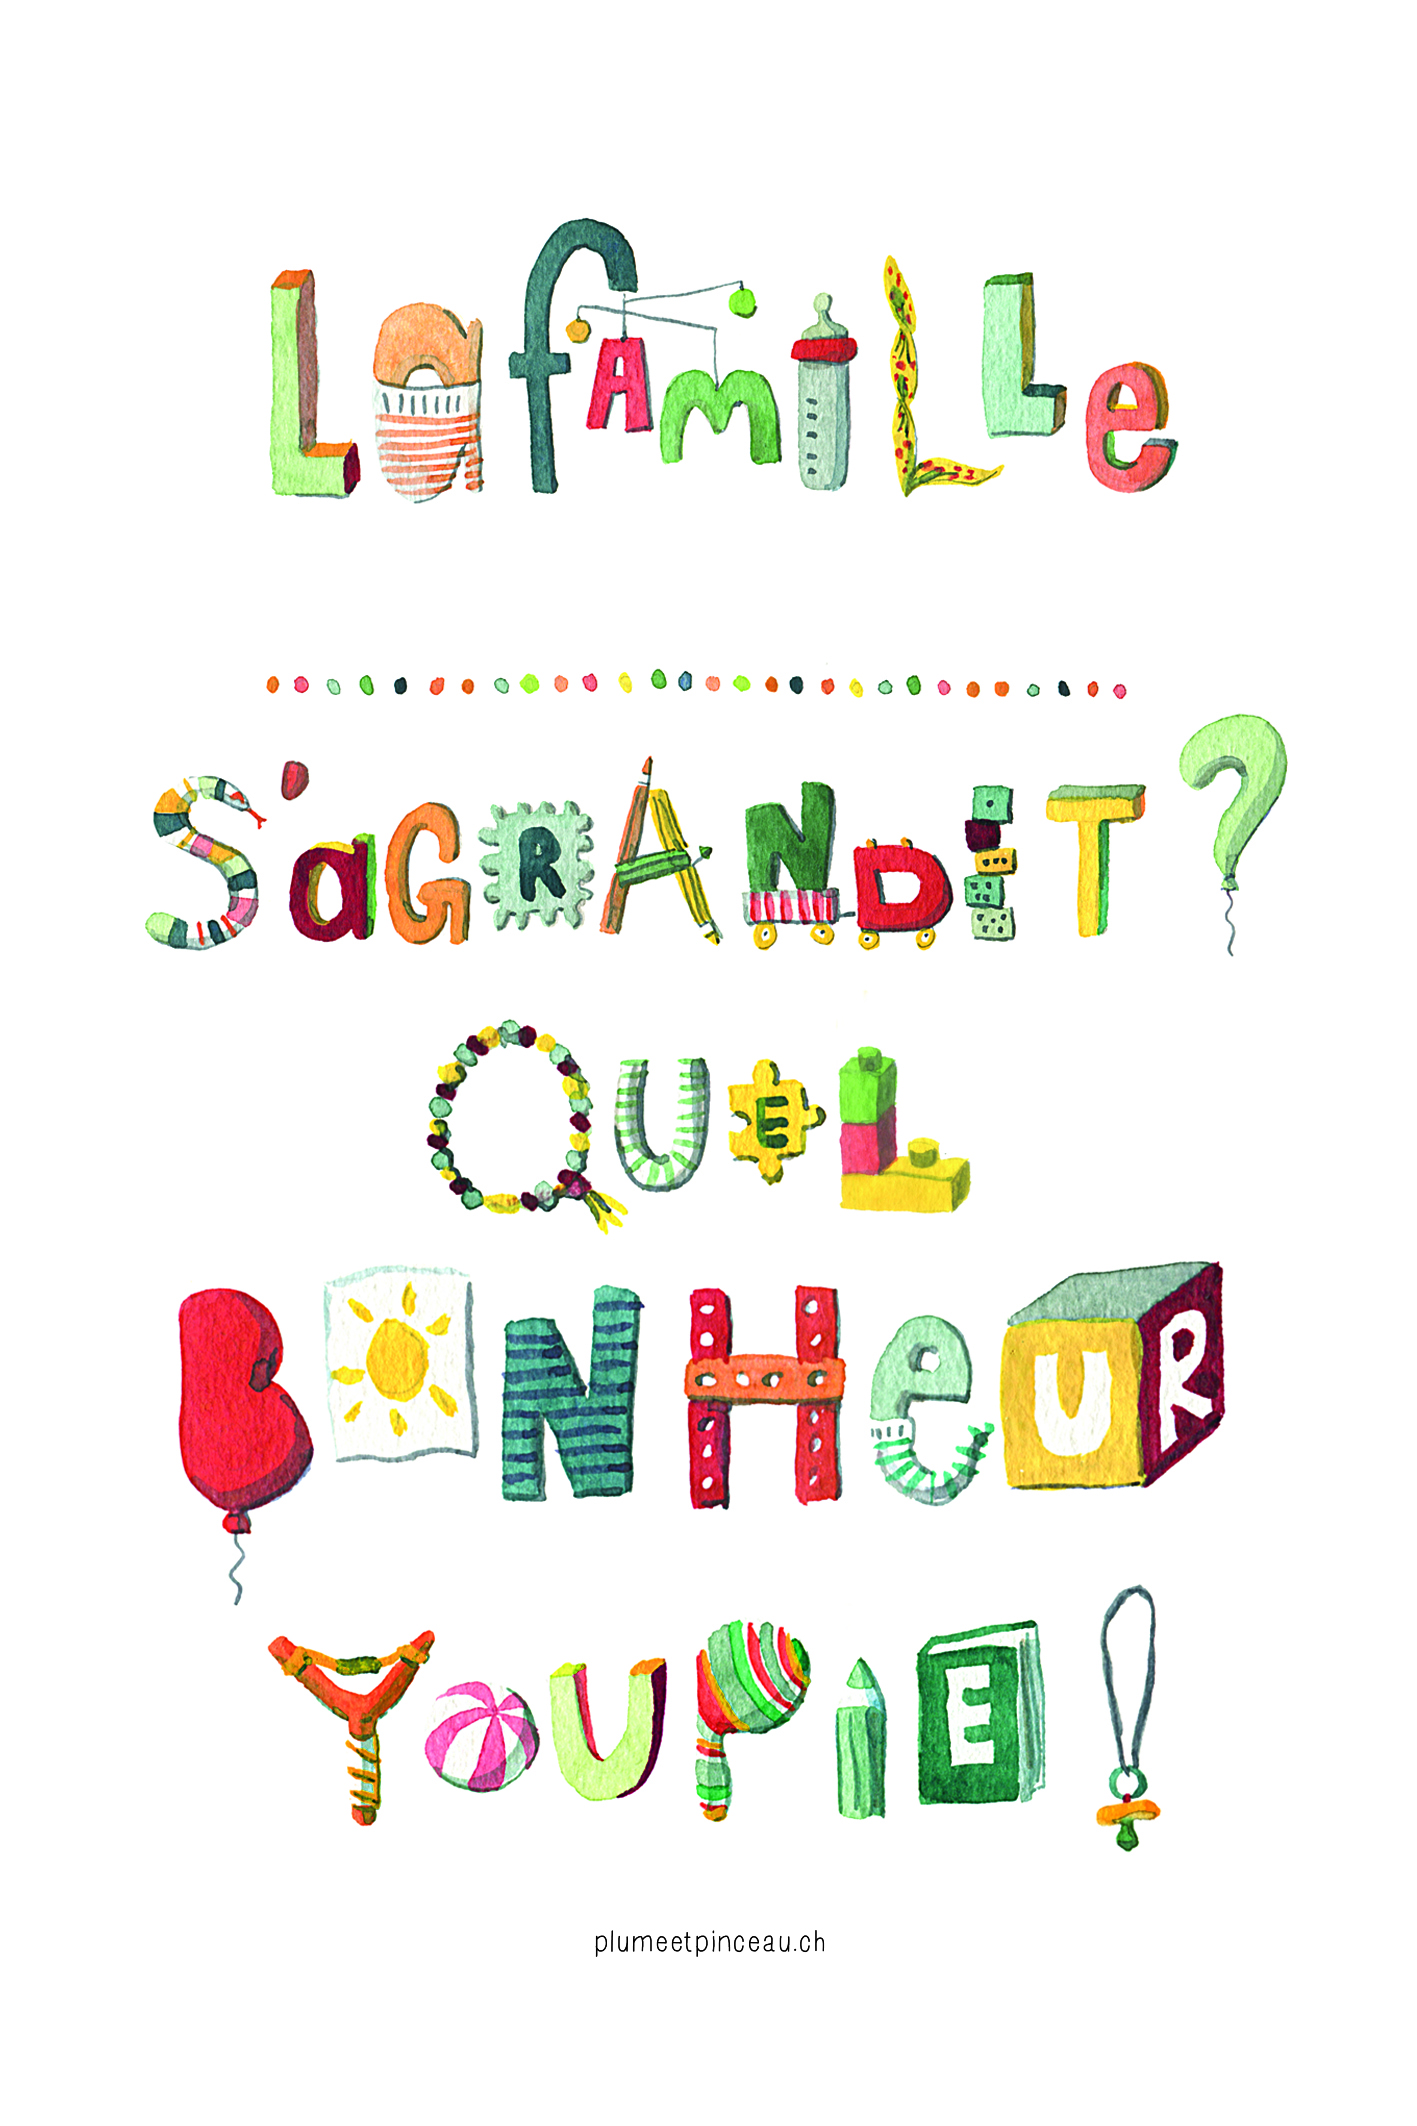 La famille
.............................
S'aGRANDiT ?
QUEL
BONHeUR
YOUPiE !
plumeetpinceau.ch